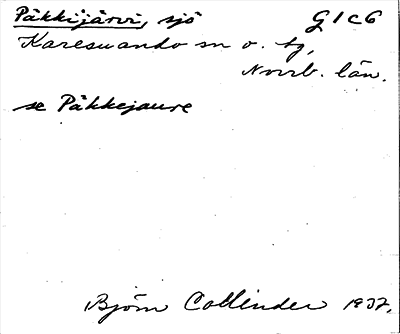 Päkkijärvi, sjö G1c6
Karesuando sn o. tg,
Norrb. län.
se Päkkejaure
Björn Collinder 1937.